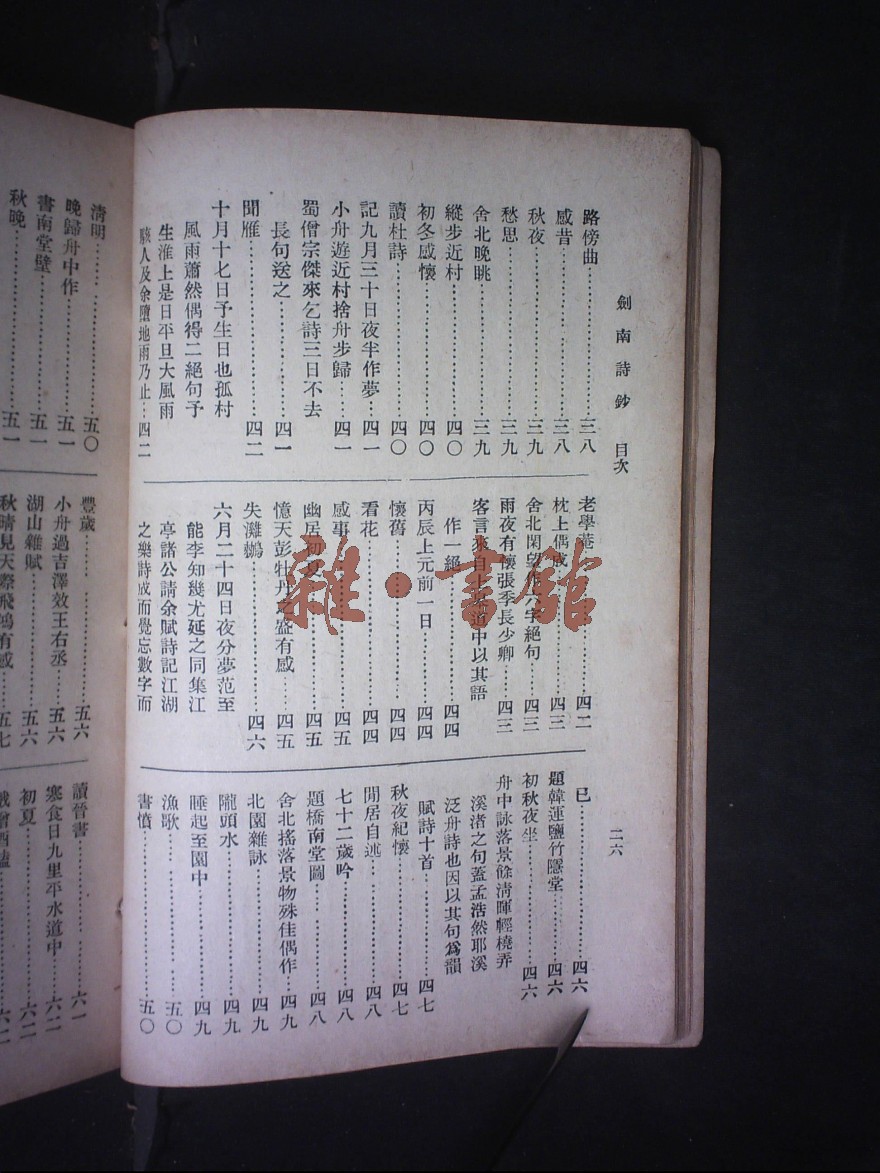 劍南詩鈔 目次
二六
路傍曲……三八
感昔……三八
秋夜……三九
愁思……三九
舍北晚眺……三九
縱步近村……四〇
初冬感懷……四〇
讀杜詩……四〇
記九月三十日夜半作夢……四一
小舟遊近村捨舟步歸……四一
蜀僧宗傑來乞詩三日不去
長句送之……四一
聞雁……四二
十月十七日予生日也孤村
風雨蕭然偶得二絕句予
生淮上是日平旦大風雨
駭人及余墮地雨乃止……四二
老學菴……四二
枕上偶成……四三
舍北閑望作六字絕句……四三
雨夜有懷張季長少卿……四三
客言來自上 道中以其語
作一絕……四四
丙辰上元前一日……四四
懷舊……四四
看花……四四
感事……四五
幽居初夏……四五
憶天彭牡丹之盛有感……四五
失灘鵝……四六
六月二十四日夜分夢范至
能李知幾尤延之同集江
亭諸公請余賦詩記江湖
之樂詩成而覺忘數字而
已……四六
題韓運鹽竹隱堂……四六
初秋夜坐……四六
舟中詠落景餘清暉輕橈弄
溪渚之句蓋孟浩然耶溪
泛舟詩也因以其句爲韻
賦詩十首……四七
秋夜紀懷……四七
閒居自述……四八
七十二歲吟……四八
題橋南堂圖……四八
舍北搖落景物殊佳偶作……四九
北園雜詠……四九
隴頭水……四九
睡起至園中……四九
漁歌……五〇
書憤……五〇
清明……五〇
晚歸舟中作……五一
書南堂壁……五一
秋晚……五一
豐歲……五六
小舟過吉澤效王右丞……五六
湖山雜賦……五六
秋晴見天際飛鴻有感……五七
讀晉書……六一
寒食日九里平水道中……六二
初夏……六二
雜·書館